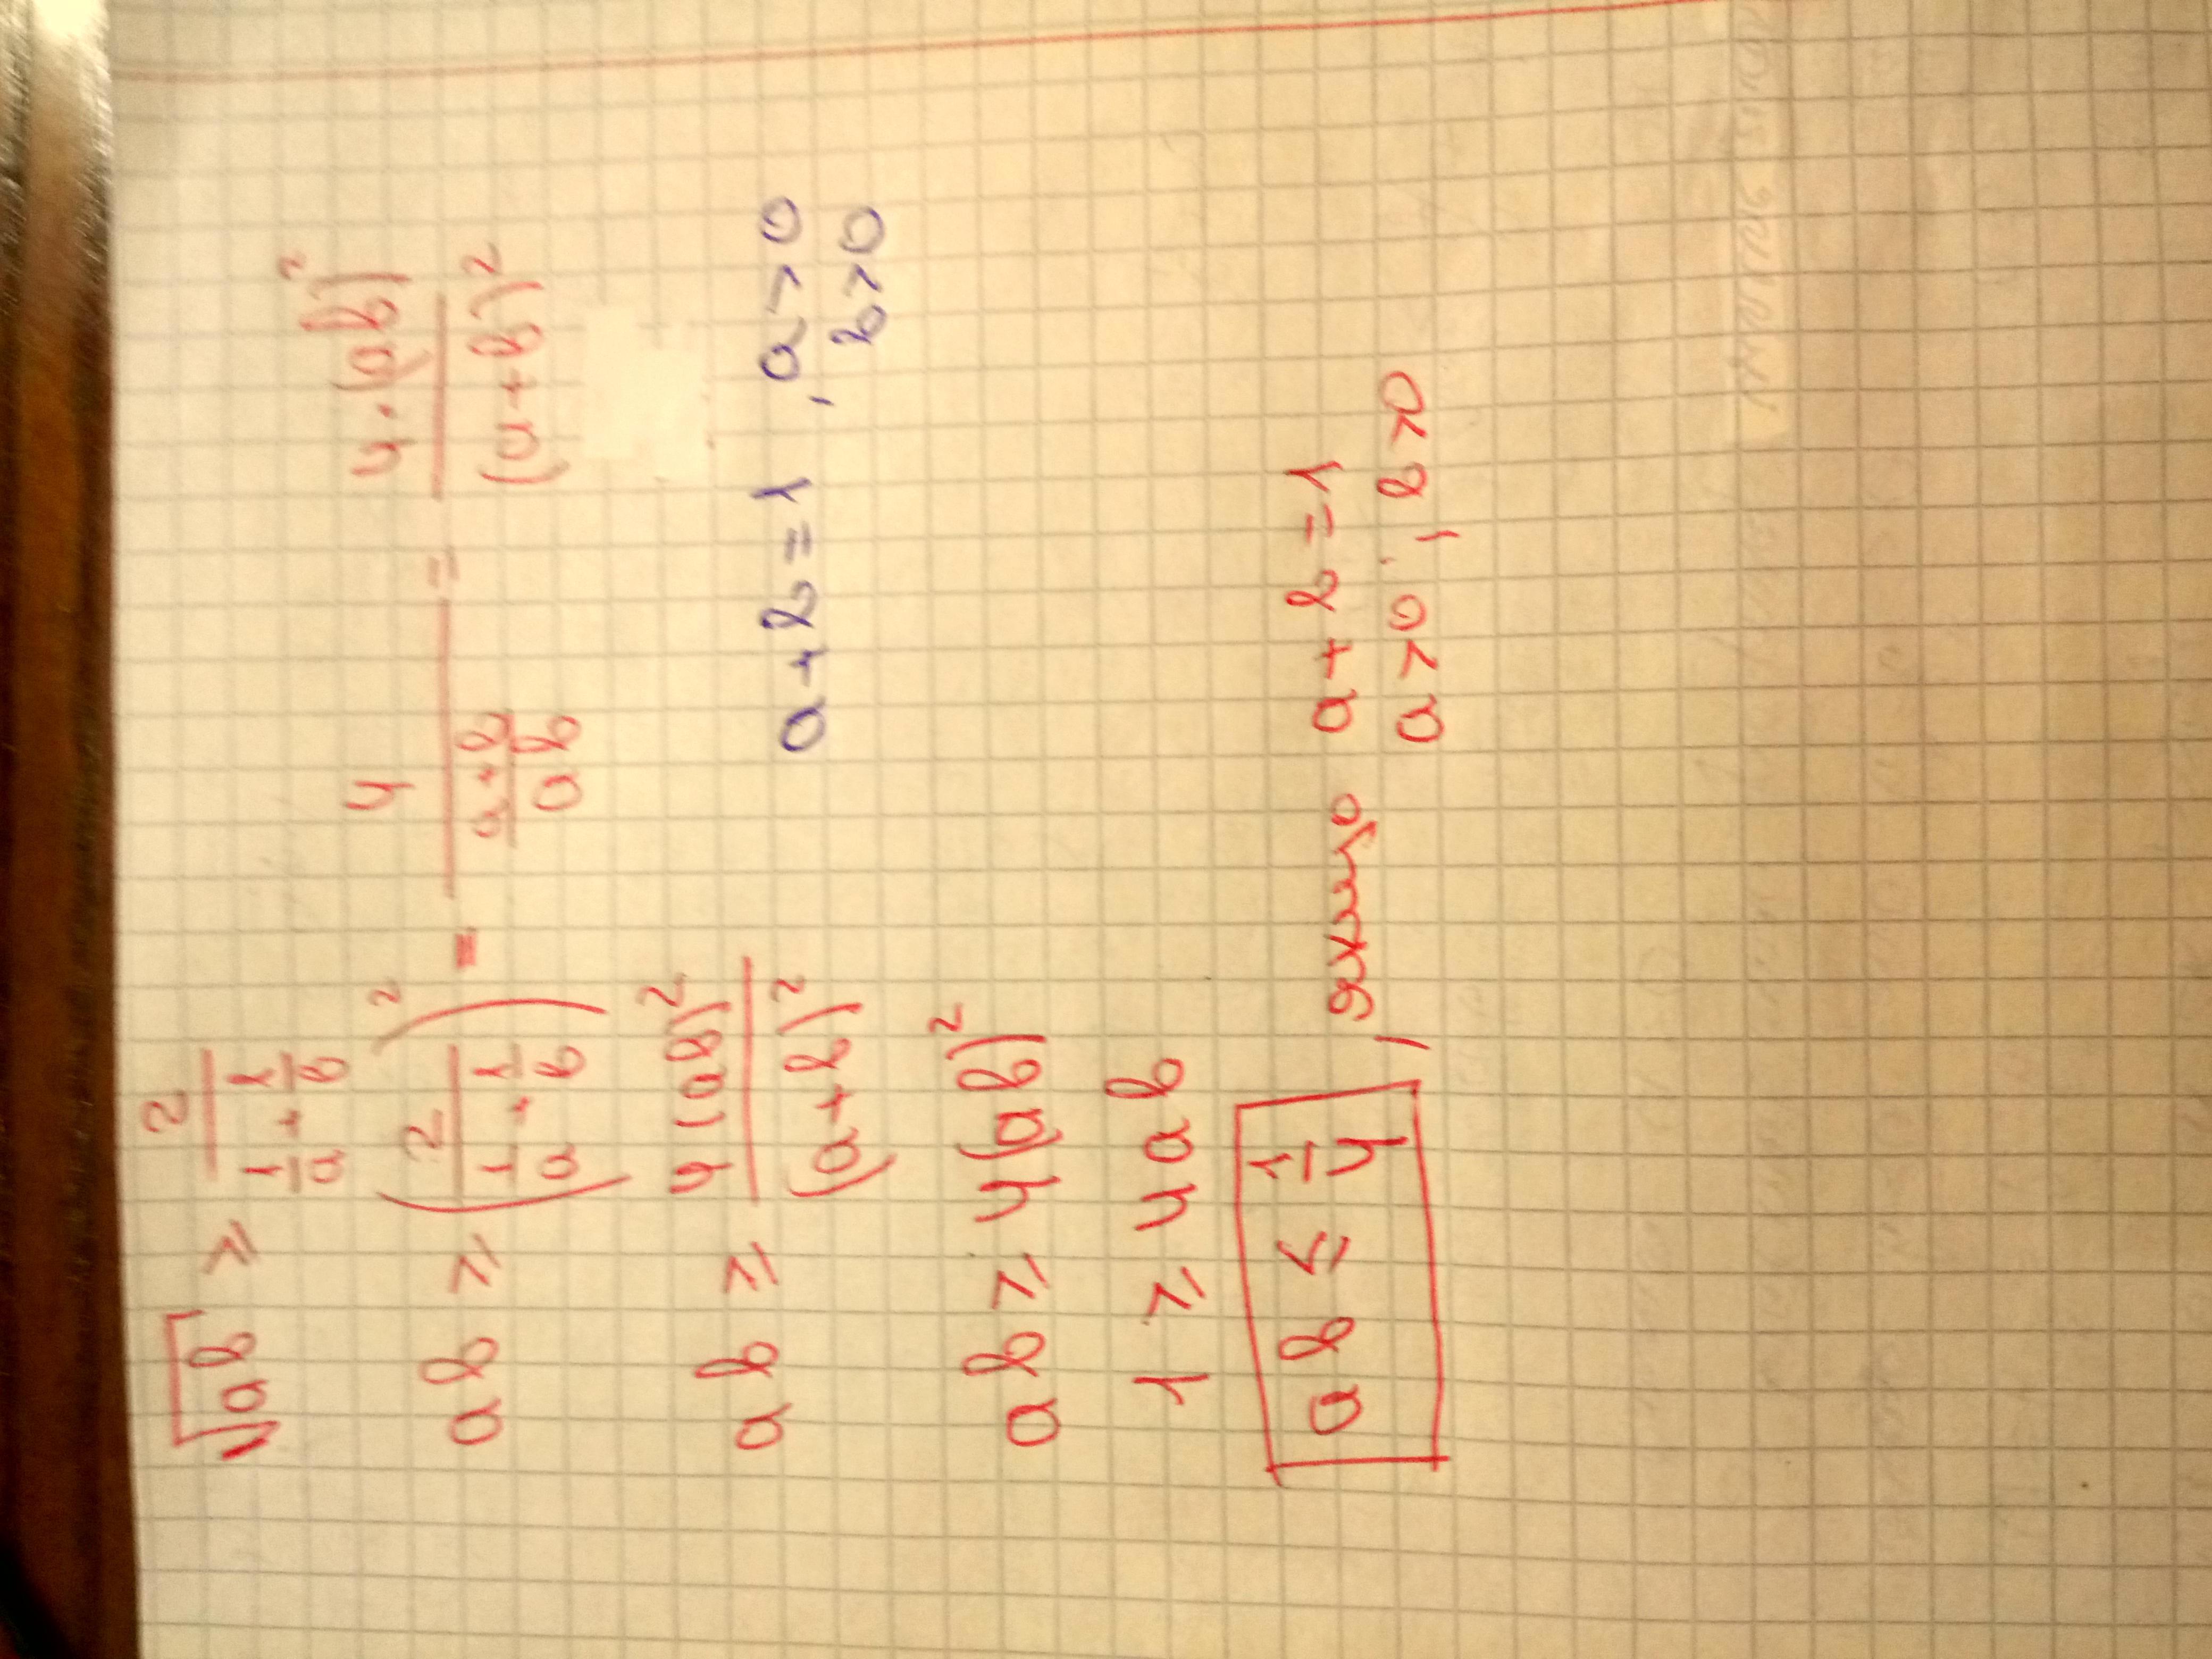 √ab ≥ 2/(1/a + 1/b)
ab ≥ (2/(1/a + 1/b))² = 4/((a+b)/ab) = 4·(ab)²/(a+b)²
ab ≥ 4(ab)²/(a+b)²
a+b=1, a>0
b>0
ab ≥ 4(ab)²
1 ≥ 4ab
ab ≤ 1/4, a+b=1
a>0, b>0